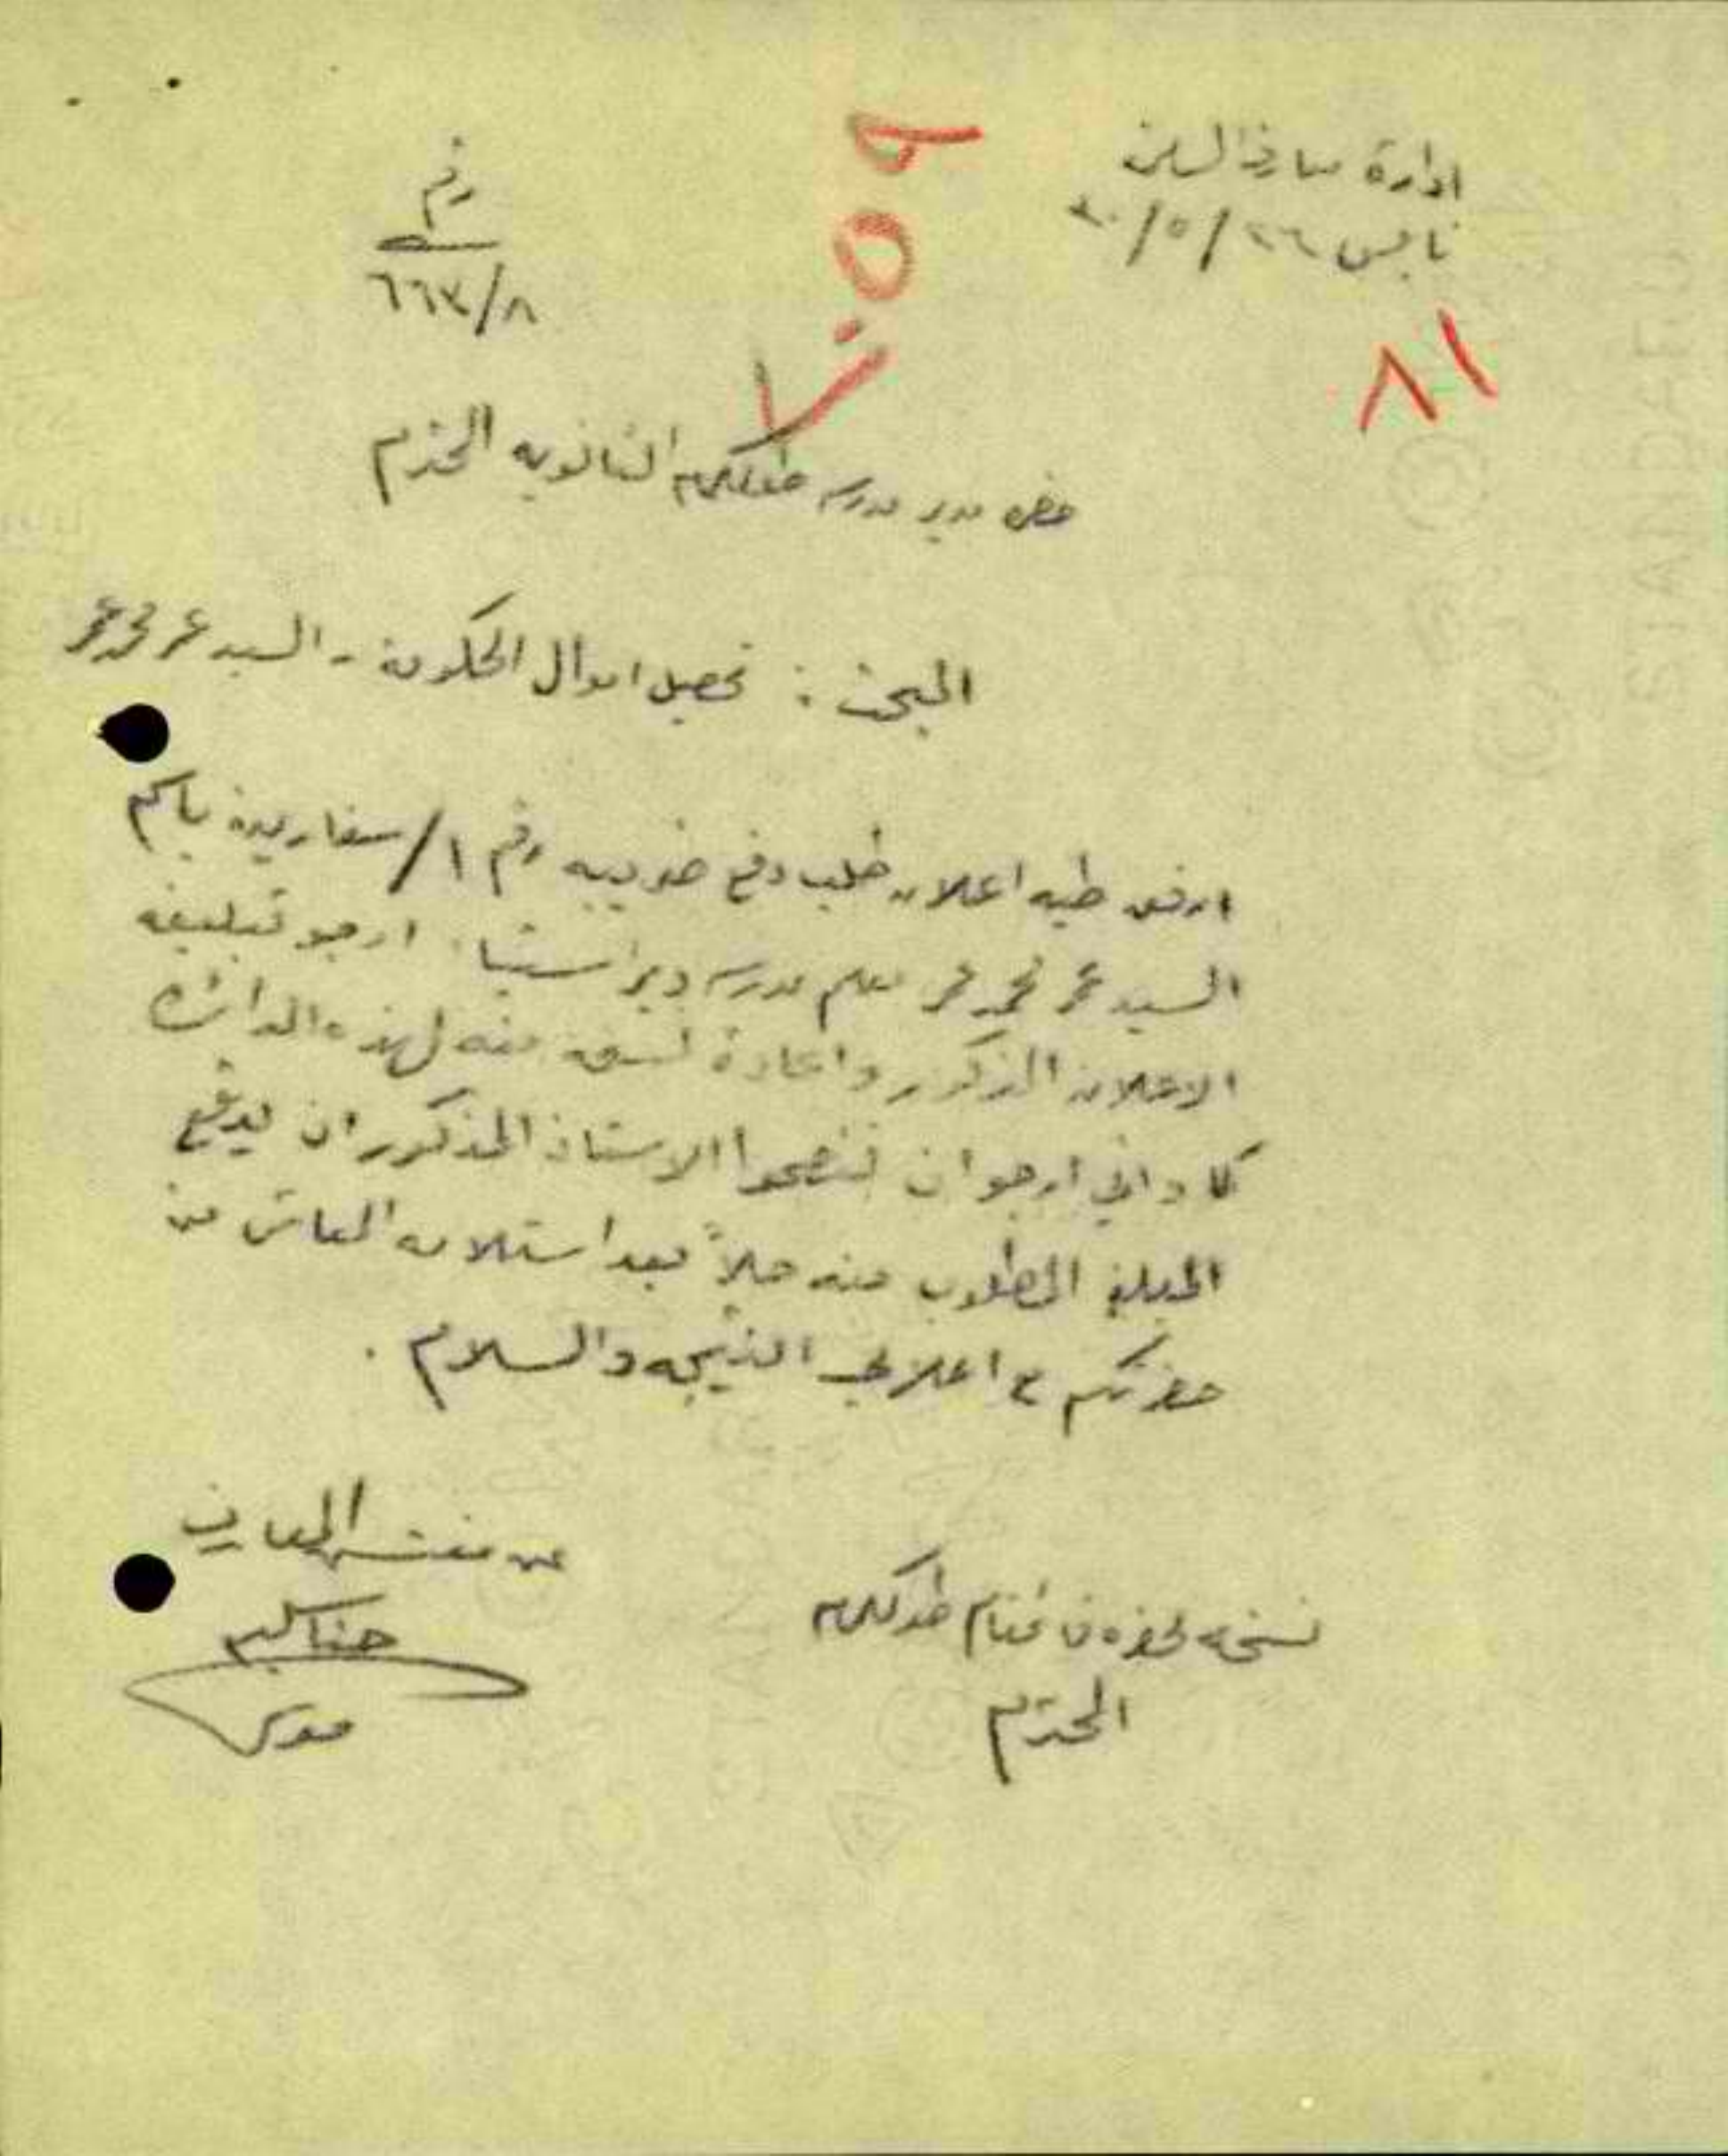 ادارة معارف السامرة
نابلس
رقم
٨/٦٦٣
٨١
حضرة مدير مدرسة طولكرم الثانويه المحترم
المبحث : تحصيل اموال الحكومة - السيد عمر محمد عمر
ارفق طيه اعلان طلب دفع ضريبه رقم ١/ باسم
السيد عمر محمد عمر معلم مدرسة دير استيا . ارجو تبليغه
الاعلان المذكور واعادة نسخة منه لهذه الدائرة
كما واني ارجو ان تنصحوا الاستاذ المذكور ان يدفع
المبلغ المطلوب منه حالاً بعد استلامه المعاش من
حضرتكم مع اعلامي النتيجه والسلام .
عن مفتش المعارف
نسخه لحضرة قائمقام طولكرم
المحترم